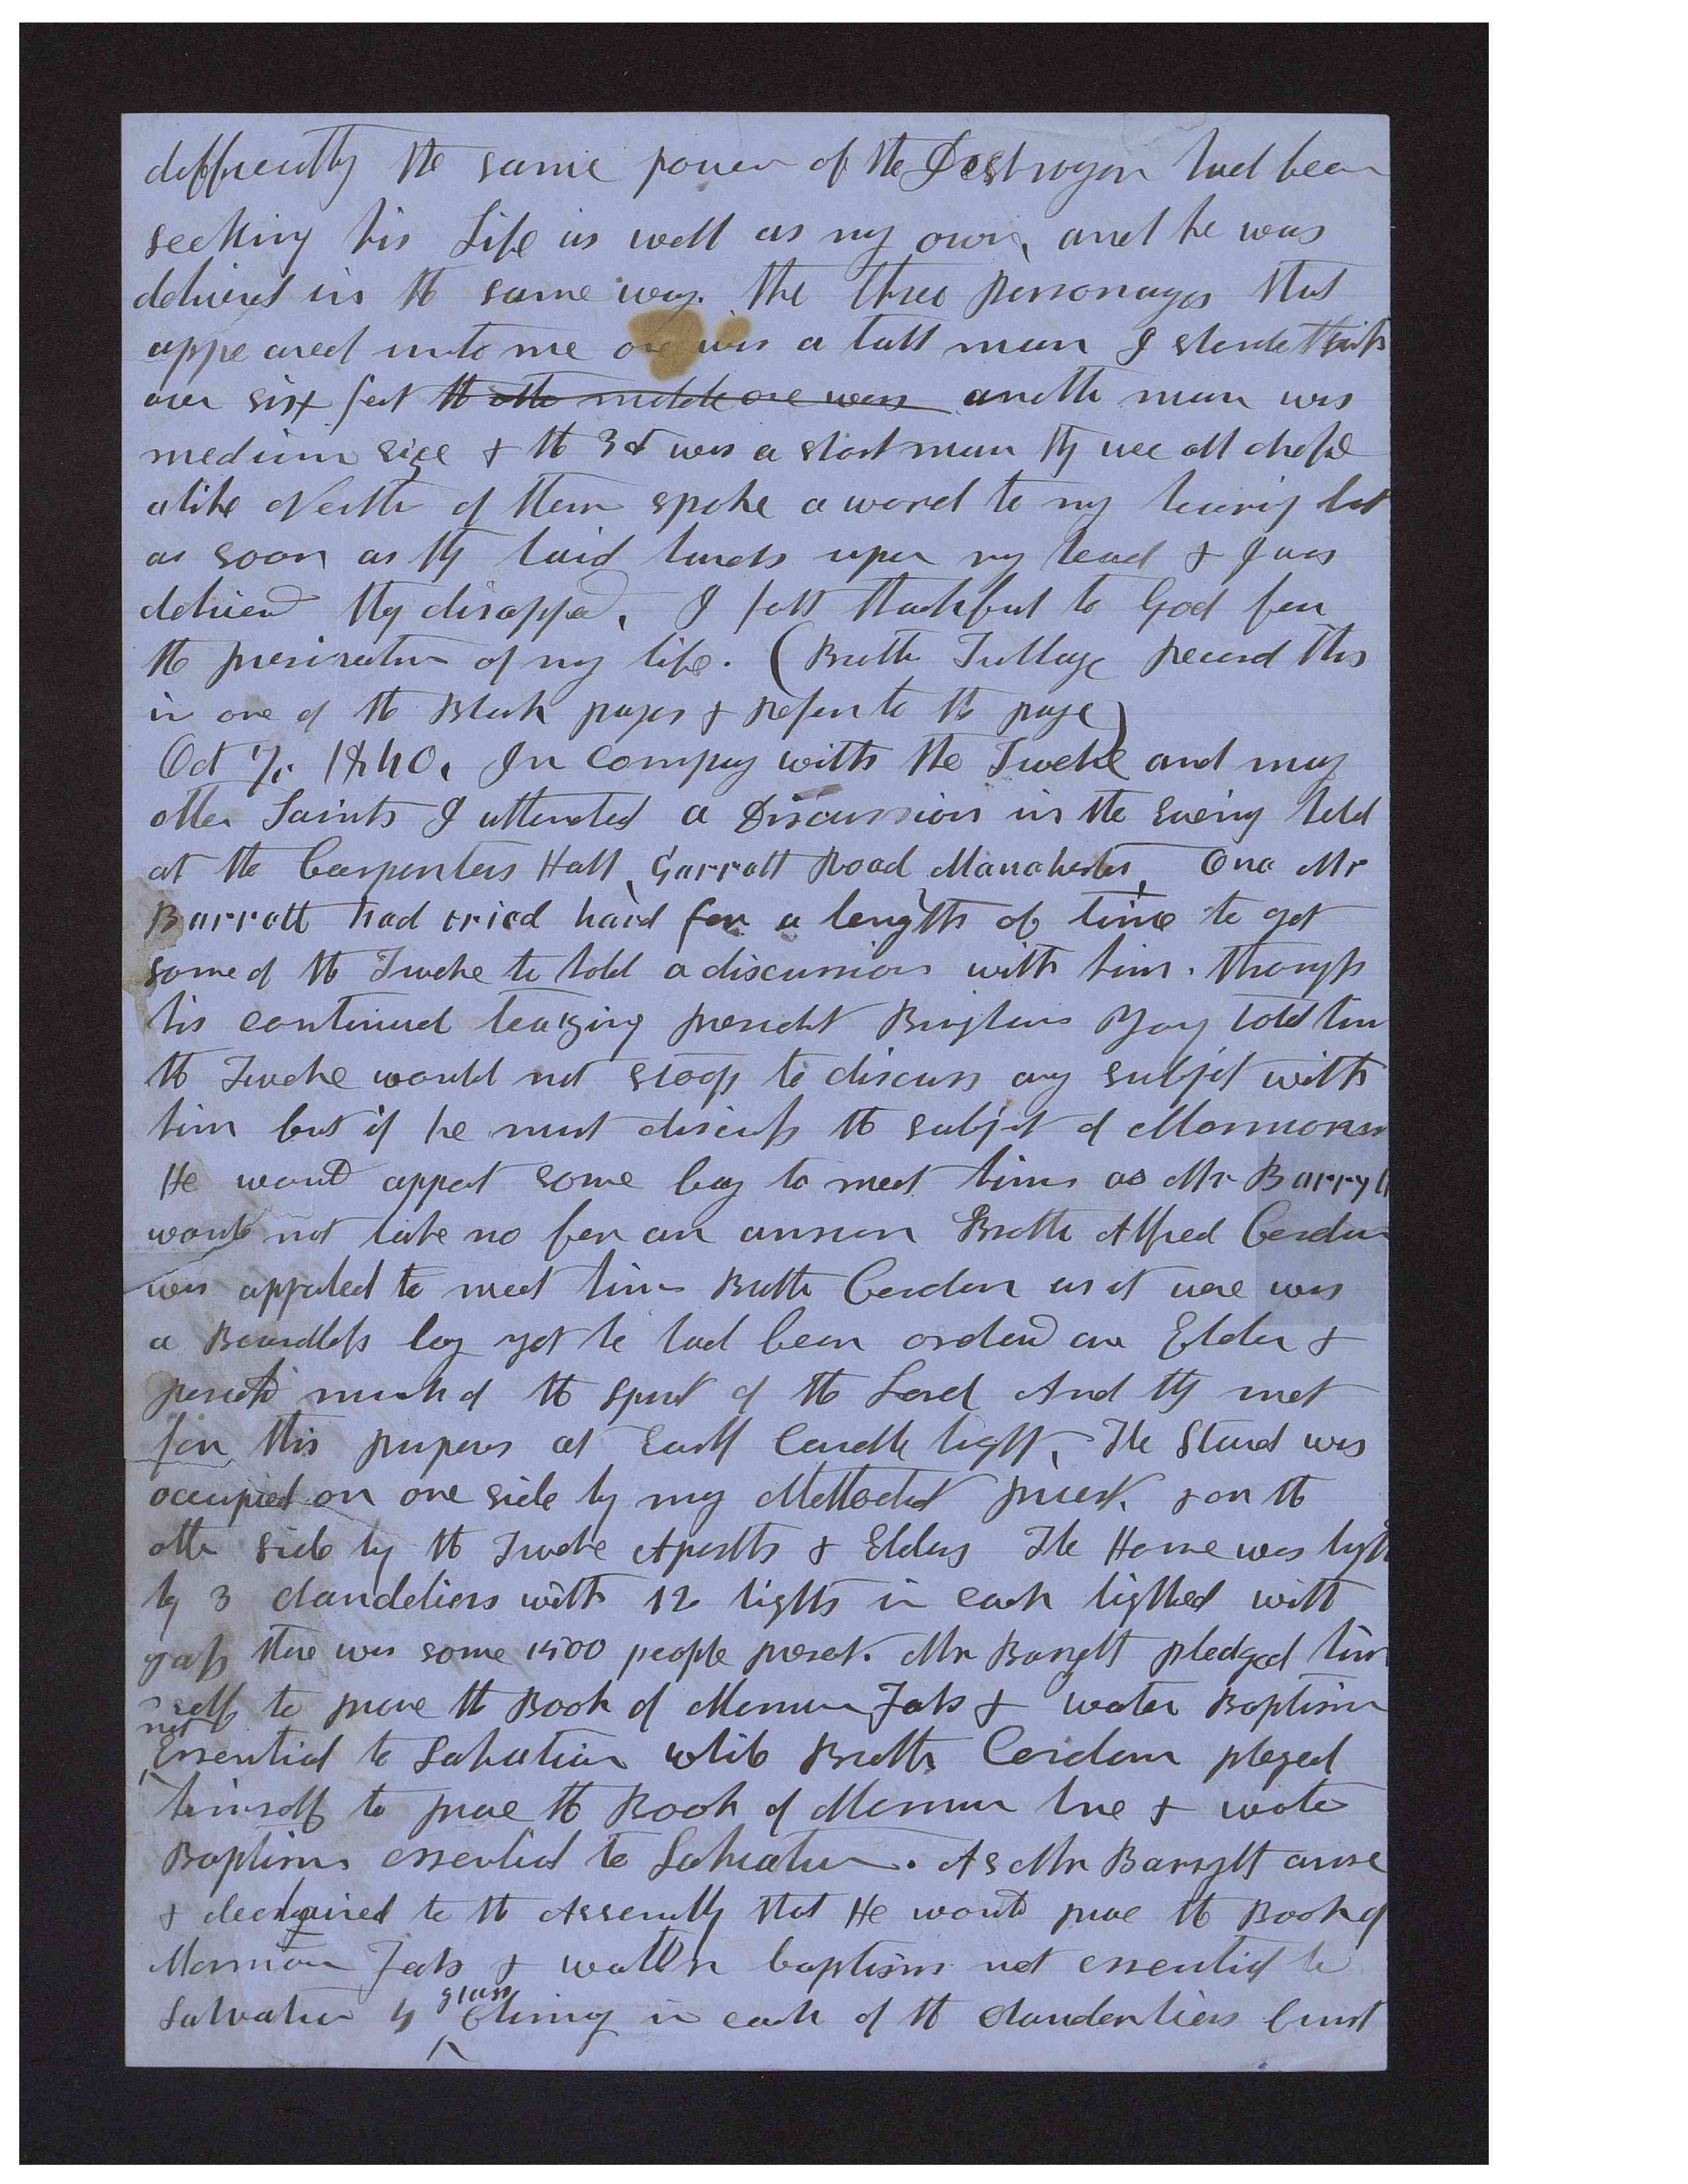 differently the same power of the Destroyer had been
seeking his Life as well as my own, and he was
deliverd in the same way. The three personages that
appeared unto me one was a tall man I should think
over six feet the other middle one was another man was
medium size & the 3d was a short man they were all dressed
alike Neither of them spoke a word to my hearing but
as soon as they laid hands upon my head & I was
deliverd they disappeard, I felt thankful to God for
the preservation of my life. (Brother Tullage record this
in one of the Blank pages & refer to the page)
Oct 7, 1840, In Company with the Twelve and many
other Saints I attended a Discussion in the Evening held
at the Carpenters Hall, Garratt Road Manchester, One Mr
Barratt had tried hard for a length of time to get
some of the Twelve to hold a discussion with him. through
his continued teaizing president Brigham Young told him
the Twelve would not stoop to discuss any subject with
him but if he must discuss the subject of Mormonism
He would appoint some boy to meet him as Mr Barrytt
would not take no for an answer Brother Alfred Cordon
was appointed to meet him Brother Cordon as it were was
a Beardless boy yet he had been ordaind an Elder &
much of the spirit of the Lord And they met
for this purpose at Early Candle light, The Stand was
occupied on one side by many Methodist priest. & on the
other side by the Twelve Apostles & Elders The House was light
by 3 chandeliers with 12 lights in each lighted with
gass there was some 1500 people present. Mr Barrytt pledged him
self to prove the Book of Mormon Fals & water Baptism
not Essential to Salvation while Brother Cordon pleged
himself to prove the Book of Mormon true & water
Baptism essential to Salvation. As Mr Barrytt arose
& declaired to the Assembly that He would prove the Book of
Mormon Fals & watter baptism not essential to
Salvation glass in each of the chandenliers burst